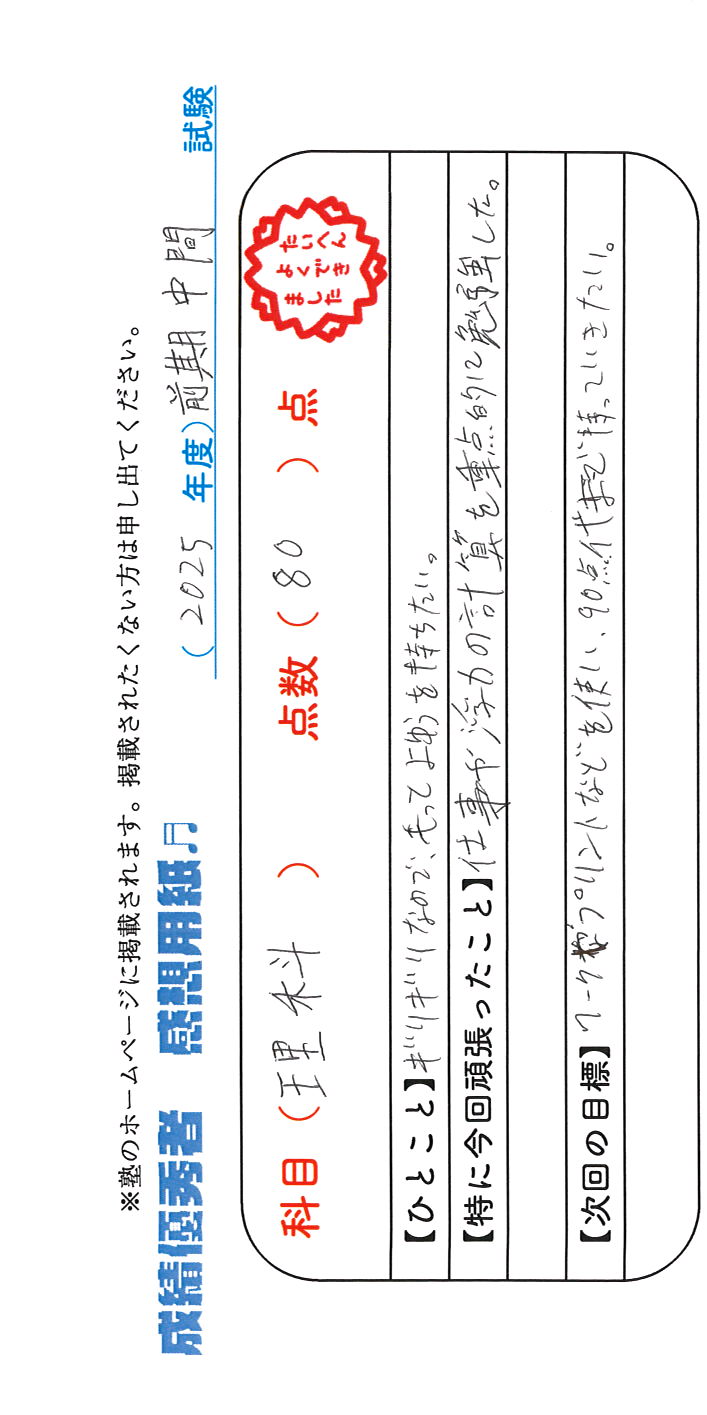 ※塾のホームページに掲載されます。掲載されたくない方は申し出てください。
成績優秀者 感想用紙♬ (2025 年度)前期中間 試験
科目(理科) 点数(80)点
たいへん
よくでき
ました
【ひとこと】ギリギリなので、もってよゆうを持ちたい。
【特に今回頑張ったこと】仕事や浮力の計算を重点的に勉強した。
【次回の目標】ワークやプリントなどを使い、90点代まで持っていきたい。